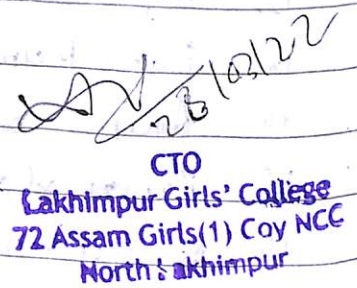 28/03/22
CTO
Lakhimpur Girls' College
72 Assam Girls(1) Coy NCC
North Lakhimpur